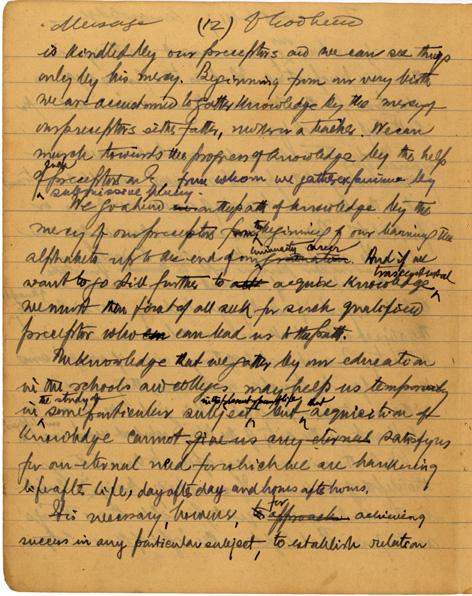 Message (12) of Godhead
is kindled by our preceptors and we can see things
only by his mercy. Beginning from our very birth
we are accustomed to gather knowledge by the mercy of
our preceptors either father, mother or a teacher. We can
march towards the progress of knowledge by the help
of such preceptors from whom we gather experience by
submissive
We go ahead on the path of knowledge by the
mercy of our preceptors from the beginning of our learning the
alphabets up to the end of our university career. And if we
want to go still further to acquire transcendental knowledge,
we must then first of all seek for such qualified
preceptor who can lead us to the path.
The knowledge that we gather by our education
in the schools and colleges, may help us temporarily
in the study of some particular subject in the planet of our life, but that acquisition of
knowledge cannot give us any eternal satisfy us
for our eternal need for which we are hankering
life after life, day after day and hours after hours.
It is necessary, however, to for approach achieving
success in any particular subject, to establish relation